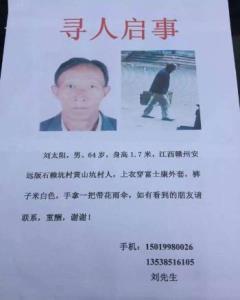 寻人启事
刘太阳，男，64岁，身高1.7米，江西赣州安
远版石糠坑村黄山坑村人，上衣穿富士康外套，裤
子米白色，手拿一把带花雨伞，如有看到的朋友请
联系，重酬，谢谢！
手机：15019980026
13538516105
刘先生